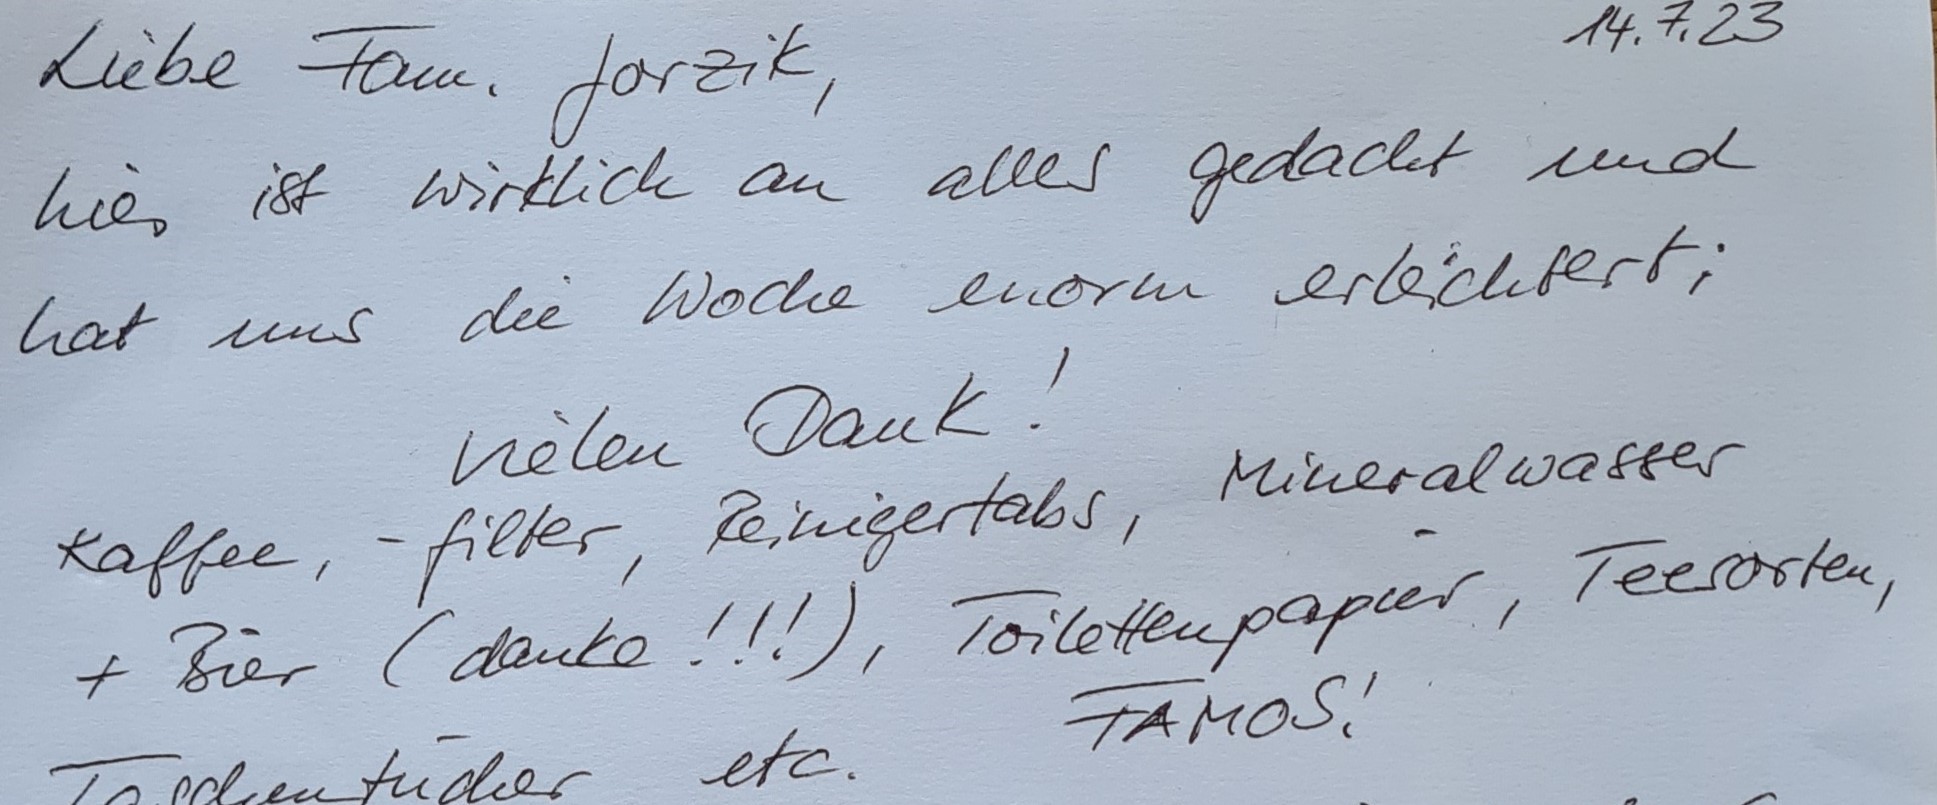 14.7.23
Liebe Fam. Jorzik,
hier ist wirklich an alles gedacht und
hat uns die Woche enorm erleichtert;
vielen Dank!
Kaffee, -filter, Reinigertabs, Mineralwasser
+ Bier (danke!!!), Toilettenpapier, Teesorten,
Taschentücher etc. FAMOS!